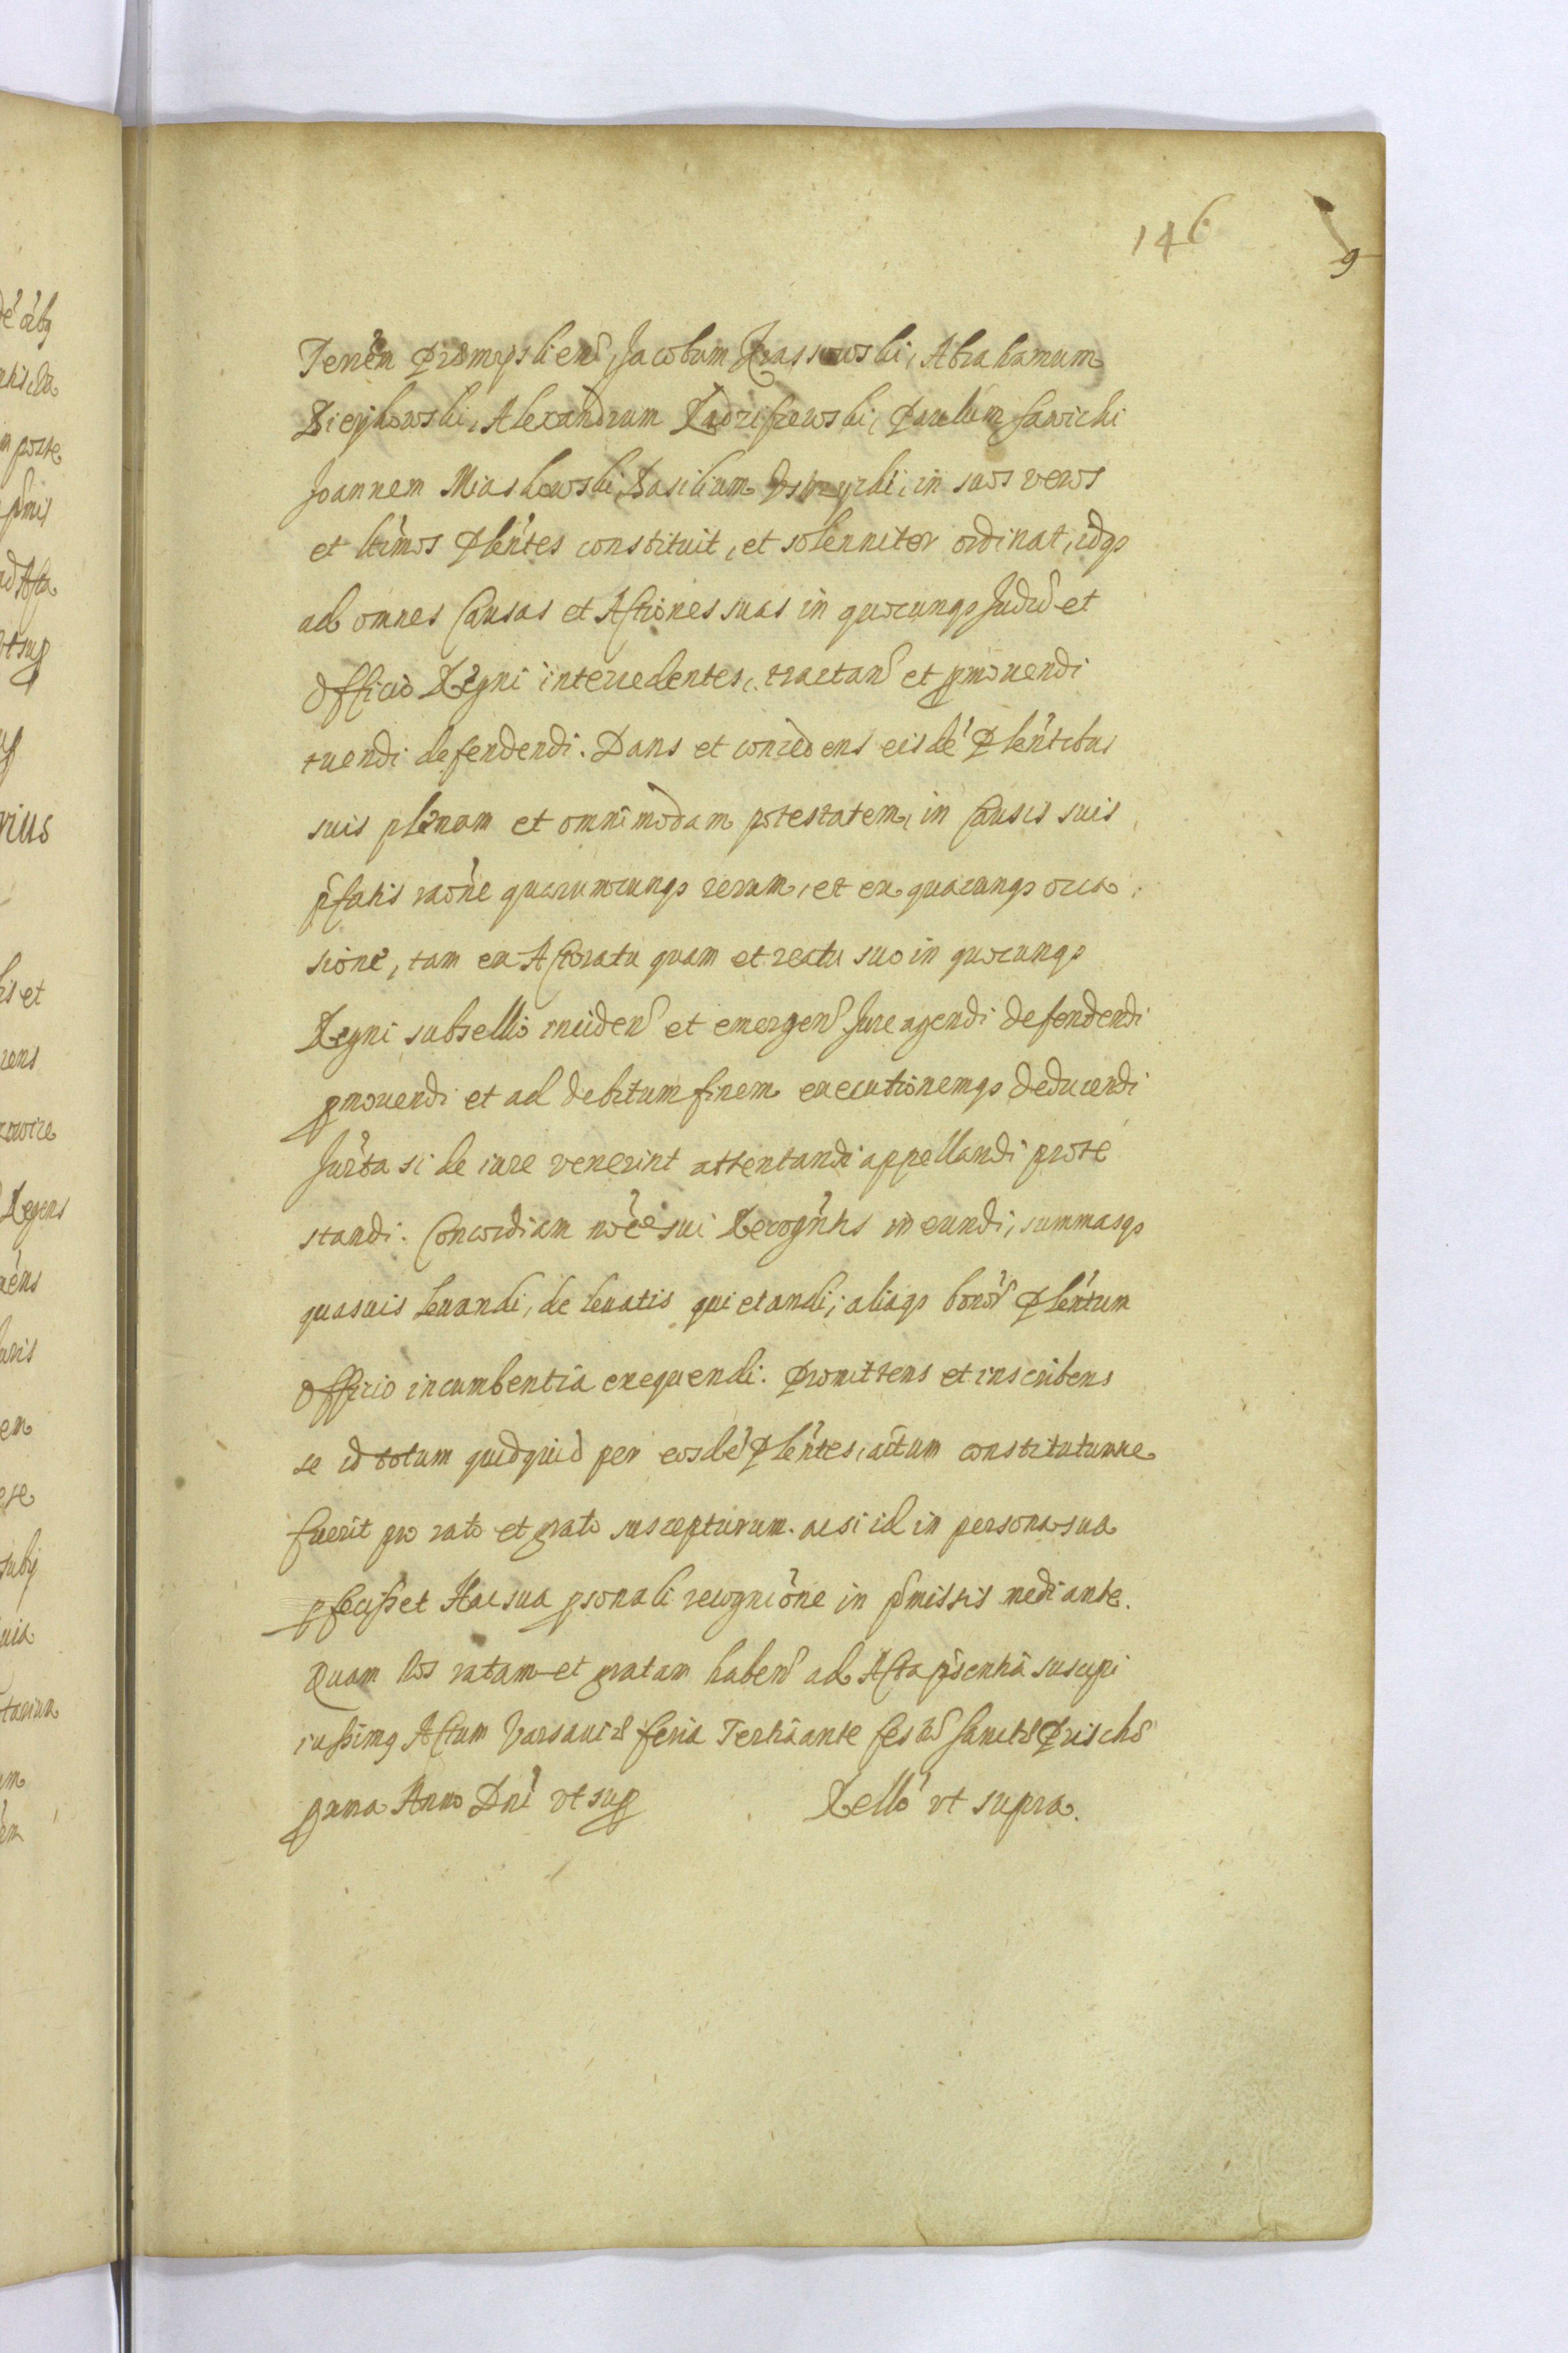 146
9
Tenen Premyslien Jacobum Krassowski, Abrahamum
Alexandrum Paulum Sawicki
Joannem Miaskowski, Basilium in suos veros
et ltimos Plentes constituit, et solenniter ordinat, idqs
ad omnes Causas et Actiones suas in quocunqs Judicio et
Officio Regni intercedentes, tractan et pmouendi
tuendi defendendi. Dans et concedens eisde Plentibus
suis plenam et omnimodam potestatem, in Causis suis
pfatis raone quarumcunqs rerum, et ex quacunqs occa
sione, tam ex Actoratu quam et reatu suo in quocunqs
Regni subsellio inciden et emergen Jure agendi defendendi
pmouendi et ad debitum finem executionemqs deducendi
Jurta si de iure venerint attentandi appellandi prote
standi. Concordiam noie sui Recognitis in eundi, summasqs
quasuis leuandi, de leuatis quietandi, aliaqs bonor Plentum
Officio incumbentia exequendi. Promittens et inscribens
se id totum quidquid per eosde Plentes, actum constitutumue
fuerit pro rato et grato suscepturum. ac si id in persona sua
pfecisset Hac sua psonali recognicione in pmissis mediante.
Quam Nos ratam et gratam haben ad Acta psentia suscipi
iussimq Actum Varsauiae feria Tertia ante festum Sanctae Priscae
Anno Dni vt sup Rello vt supra.